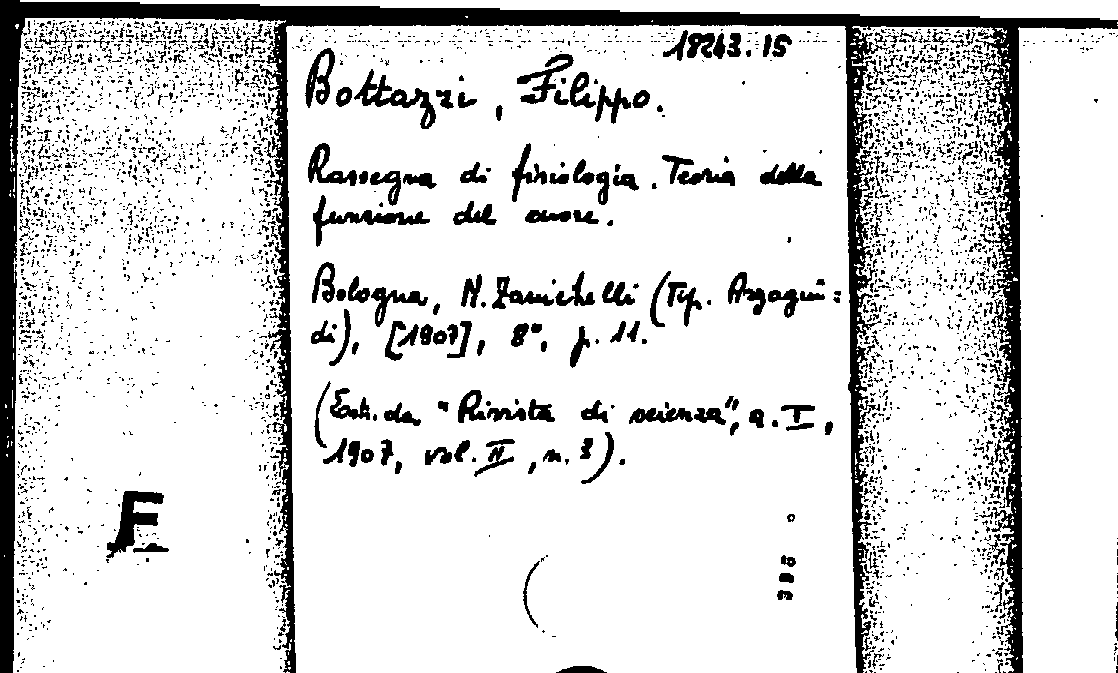 18243.15
Bottazzi, Filippo.
Rassegna di fisiologia. Teoria della
funzione del cuore.
Bologna, N. Zanichelli (Tip. Azzogui=
di), [1907], 8°, p. 11.
(Estr. da "Rivista di scienza", a. I,
1907, vol. II, n. 3).
F